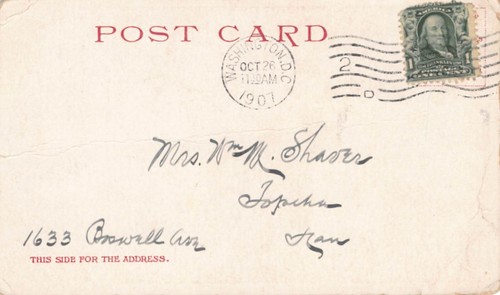 POST CARD
WASHINGTON, D.C.
OCT 26
11 30 AM
1907
2
D
AMERICA
1
Mrs. Wm M. Shaver
Topeka
Kan
1633 Boswell Ave
THIS SIDE FOR THE ADDRESS.